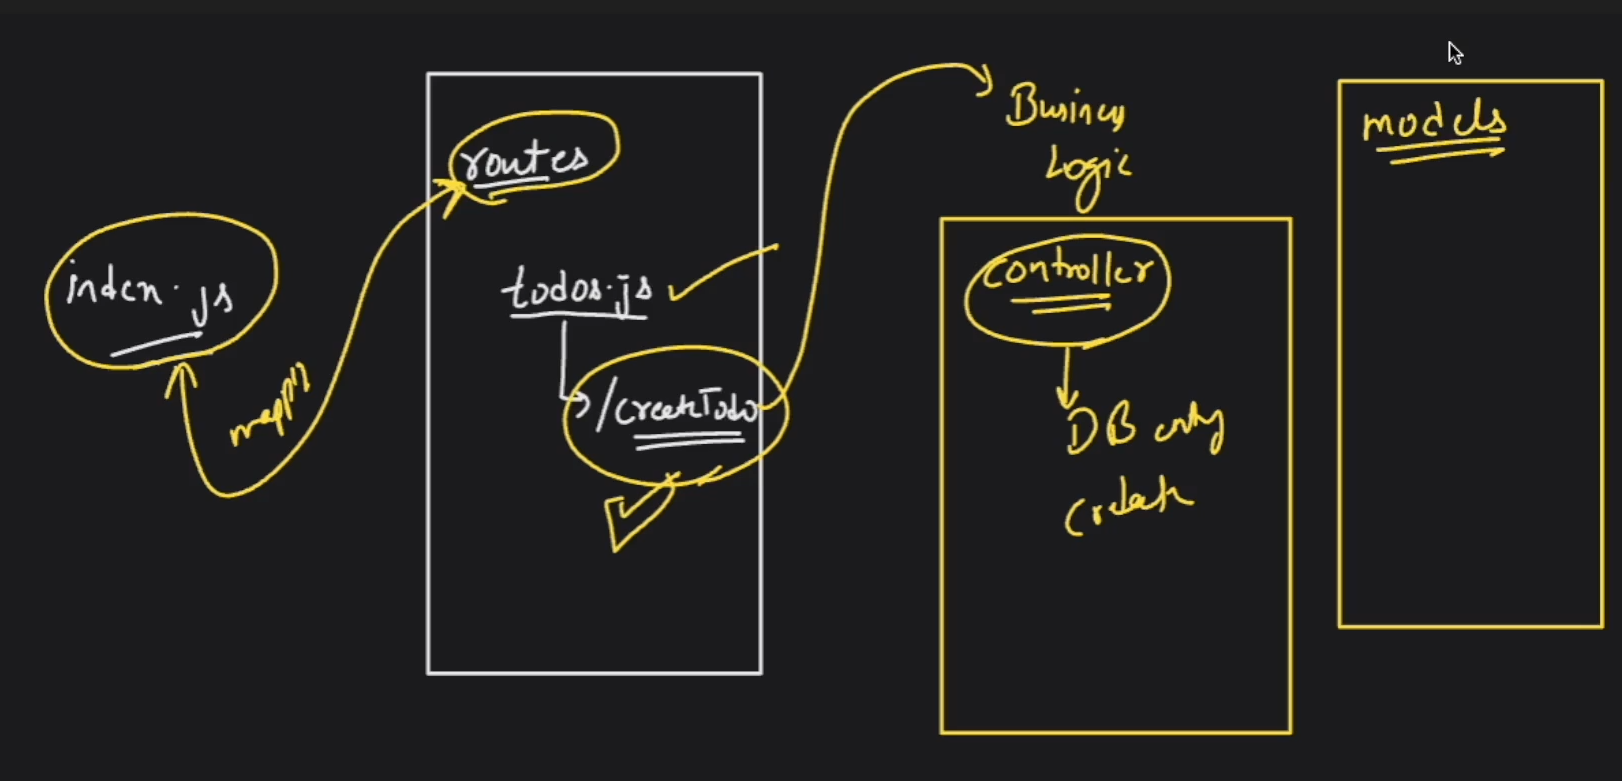 index.js
mapp()
routes
todos.js
/createTodo
Business
Logic
controller
DB entry
create
models